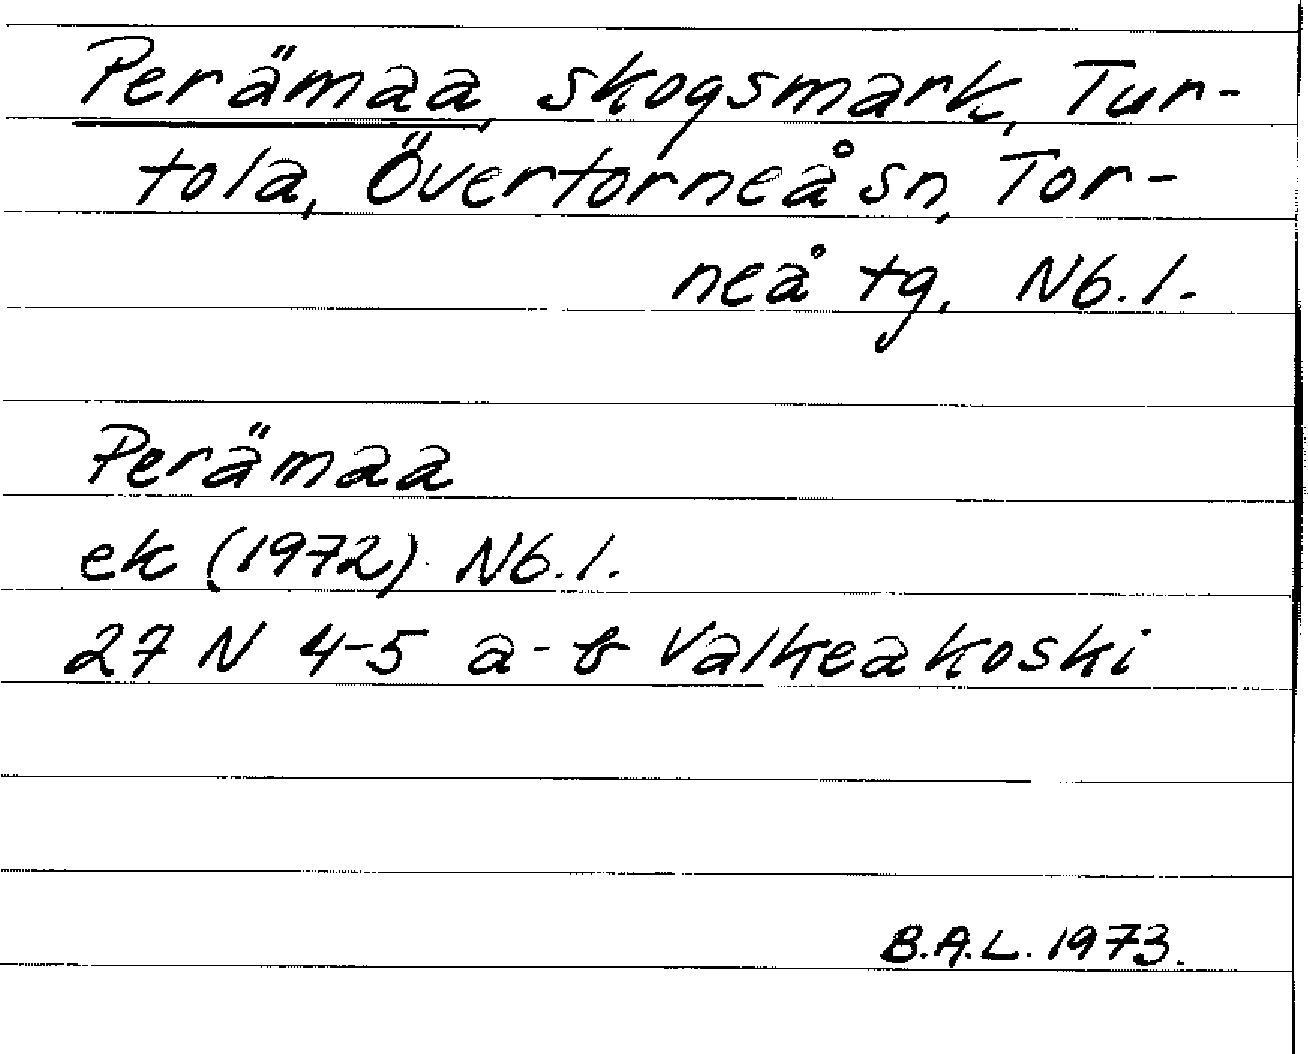 Perämaa, skogsmark, Tur-
tola, Övertorneå sn, Tor-
neå tg, Nb. l.
Perämaa
ek (1972) Nb. l.
27 N 4-5 a-b Valkeakoski
B.A.L. 1973.